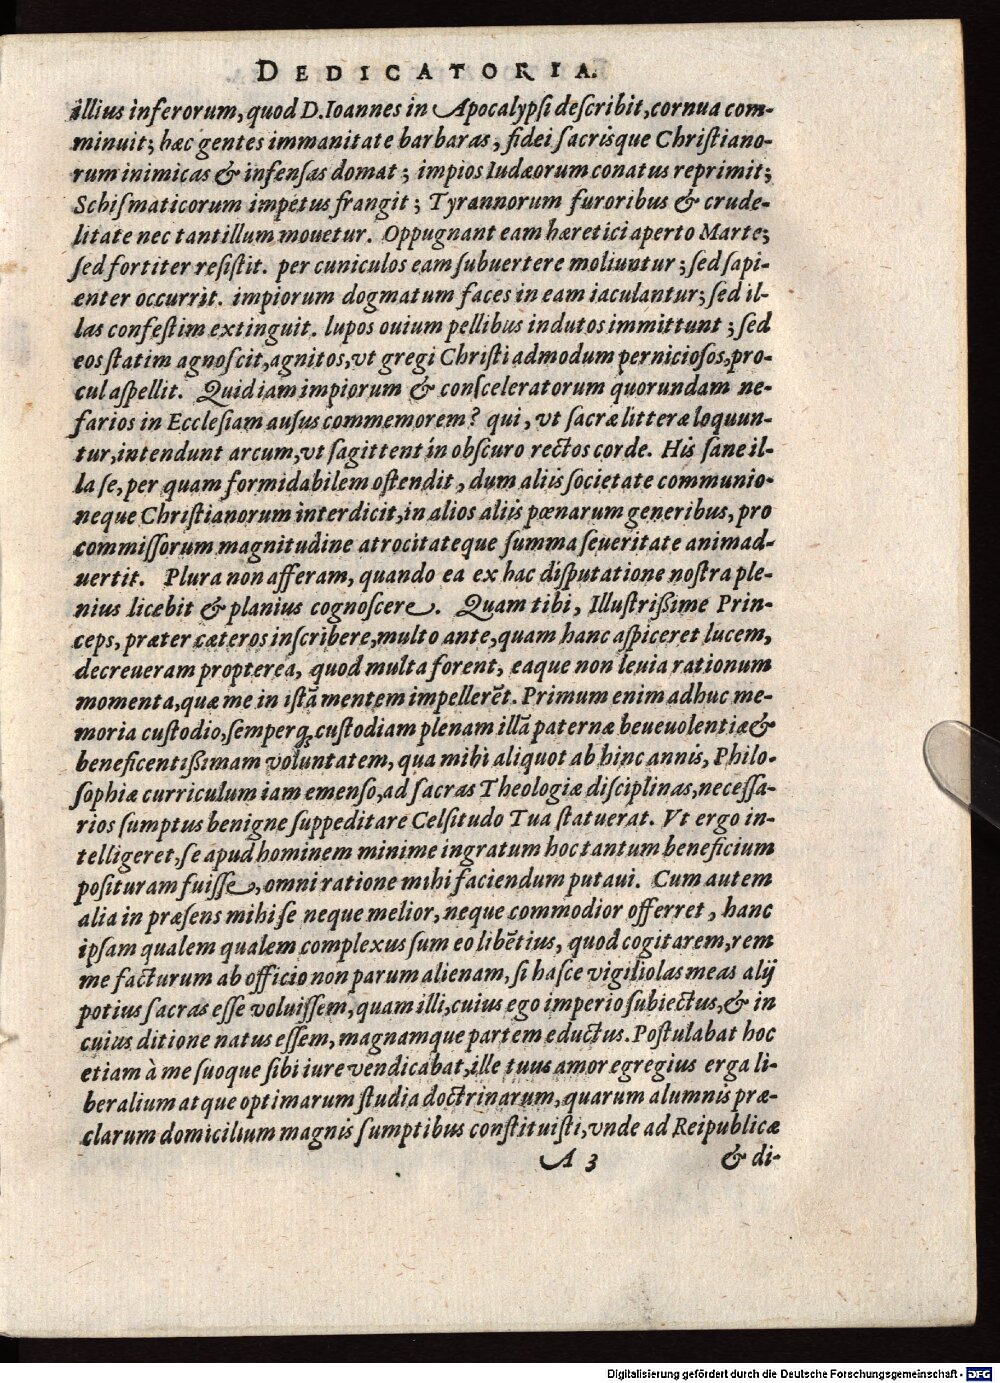 DEDICATORIA.
illius inferorum, quod D. Ioannes in Apocalypſi deſcribit, cornua com-
minuit; hæc gentes immanitate barbaras, fidei ſacrisque Chriſtiano-
rum inimicas & infenſas domat; impios Iudæorum conatus reprimit;
Schiſmaticorum impetus frangit; Tyrannorum furoribus & crude-
litate nec tantillum mouetur. Oppugnant eam hæretici aperto Marte;
ſed fortiter reſiſtit. per cuniculos eam ſubuertere moliuntur; ſed ſapi-
enter occurrit. impiorum dogmatum faces in eam iaculantur; ſed il-
las confeſtim extinguit. lupos ouium pellibus indutos immittunt; ſed
eos ſtatim agnoſcit, agnitos, vt gregi Chriſti admodum pernicioſos, pro-
cul aſpellit. Quid iam impiorum & conſceleratorum quorundam ne-
farios in Eccleſiam auſus commemorem? qui, vt ſacræ litteræ loquun-
tur, intendunt arcum, vt ſagittent in obſcuro rectos corde. His ſane il-
la ſe, per quam formidabilem oſtendit, dum aliis ſocietate communio-
neque Chriſtianorum interdicit, in alios aliis pœnarum generibus, pro
commiſſorum magnitudine atrocitateque ſumma ſeueritate animad-
uertit. Plura non afferam, quando ea ex hac diſputatione noſtra ple-
nius licebit & planius cognoſcere. Quam tibi, Illuſtrißime Prin-
ceps, præter cæteros inſcribere, multo ante, quam hanc aſpiceret lucem,
decreueram propterea, quod multa forent, eaque non leuia rationum
momenta, quæ me in iſtã mentem impellerẽt. Primum enim adhuc me-
moria cuſtodio, ſemperq; cuſtodiam plenam illã paternæ beueuolentiæ &
beneficentißimam voluntatem, qua mihi aliquot ab hinc annis, Philo-
ſophiæ curriculum iam emenſo, ad ſacras Theologiæ diſciplinas, neceſſa-
rios ſumptus benigne ſuppeditare Celſitudo Tua ſtatuerat. Vt ergo in-
telligeret, ſe apud hominem minime ingratum hoc tantum beneficium
poſituram fuiſſe, omni ratione mihi faciendum putaui. Cum autem
alia in præſens mihi ſe neque melior, neque commodior offerret, hanc
ipſam qualem qualem complexus ſum eo libẽtius, quod cogitarem, rem
me facturum ab officio non parum alienam, ſi haſce vigiliolas meas alij
potius ſacras eſſe voluiſſem, quam illi, cuius ego imperio ſubiectus, & in
cuius ditione natus eſſem, magnamque partem eductus. Poſtulabat hoc
etiam à me ſuoque ſibi iure vendicabat, ille tuus amor egregius erga li-
beralium atque optimarum ſtudia doctrinarum, quarum alumnis præ-
clarum domicilium magnis ſumptibus conſtituiſti, vnde ad Reipublicæ
A 3 & di-
Digitalisierung gefördert durch die Deutsche Forschungsgemeinschaft - DFG